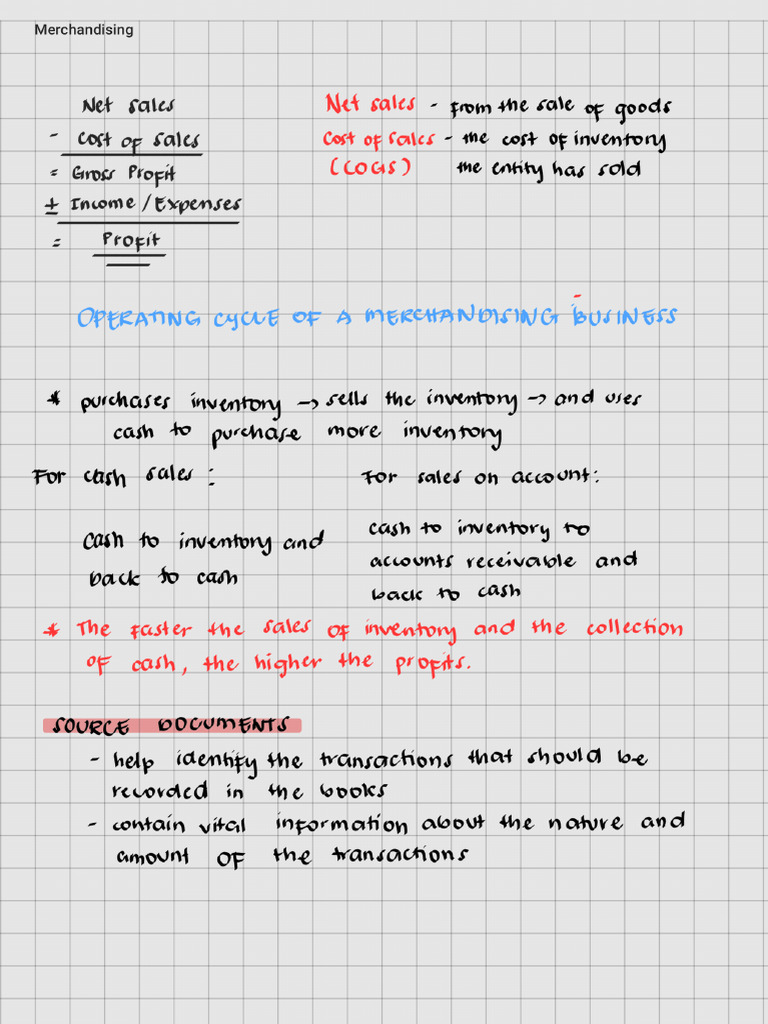 Merchandising
Net sales
- cost of sales
= Gross Profit
± Income / Expenses
= Profit
Net sales - from the sale of goods
Cost of sales - the cost of inventory
(COGS) the entity has sold
OPERATING CYCLE OF A MERCHANDISING BUSINESS
* purchases inventory → sells the inventory → and uses
cash to purchase more inventory
For cash sales :
cash to inventory and
back to cash
For sales on account:
cash to inventory to
accounts receivable and
back to cash
* The faster the sales of inventory and the collection
of cash, the higher the profits.
SOURCE DOCUMENTS
- help identify the transactions that should be
recorded in the books
- contain vital information about the nature and
amount of the transactions